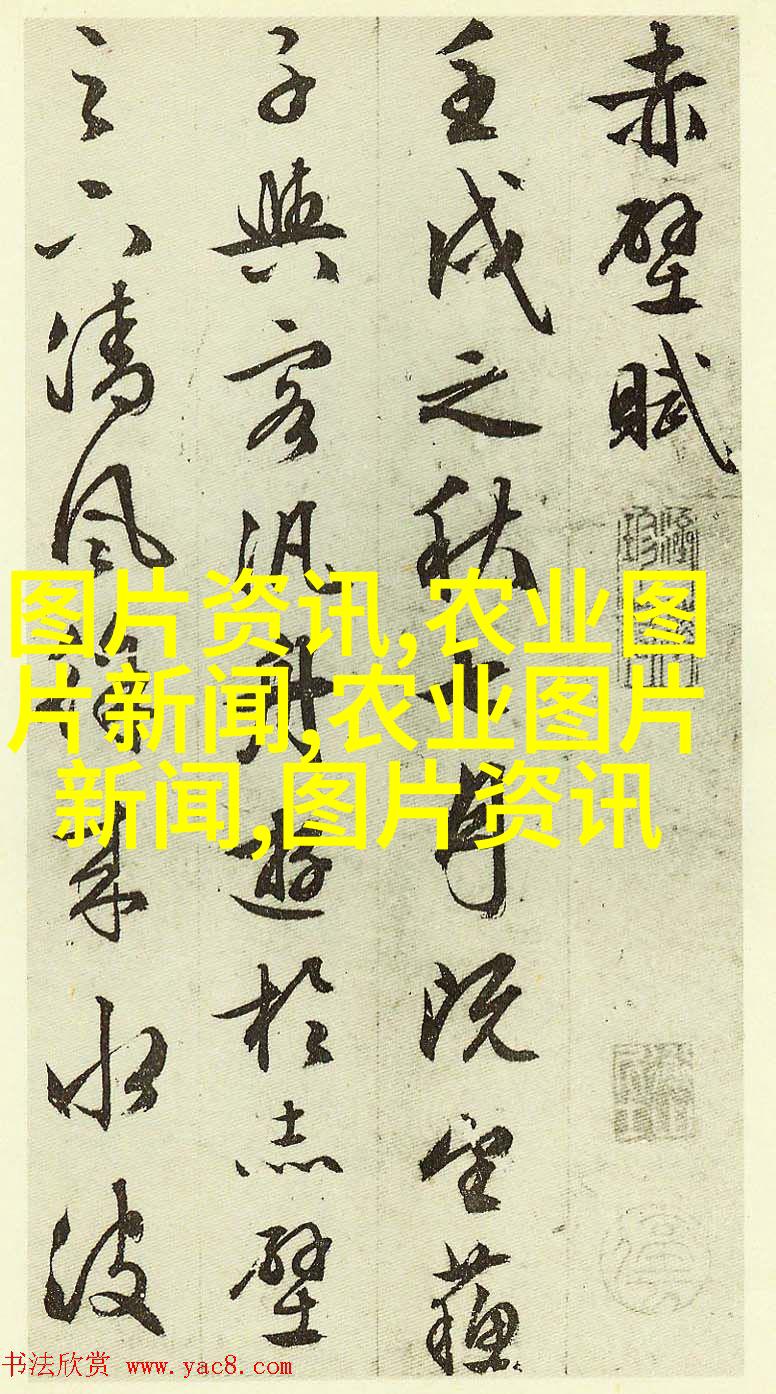 赤壁賦
壬戌之秋七月既望蘇
子與客汎舟遊於赤壁
之下清風徐來水波
图片资讯,农业图
片新闻,农业图片
新闻,图片资讯
书法欣赏 www.yac8.com